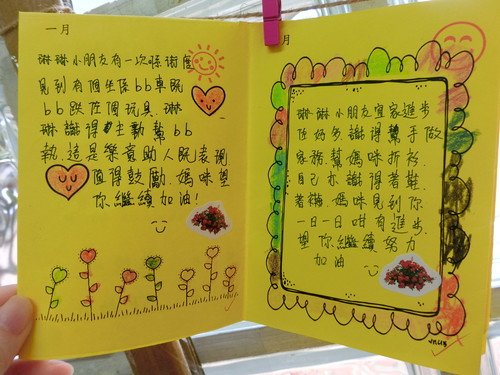 一月
琳琳小朋友有一次喺街度
見到有個坐係bb車既
bb跌左個玩具,琳
琳識得主動幫bb
執,這是樂意助人既表現
值得鼓勵,媽咪望
你繼續加油!
月
琳琳小朋友宜家進步
左好多識得幫手做
家務幫媽咪折衫,
自己亦識得著鞋,
著襪,媽咪見到你
一日一日咁有進步,
望你繼續努力
加油